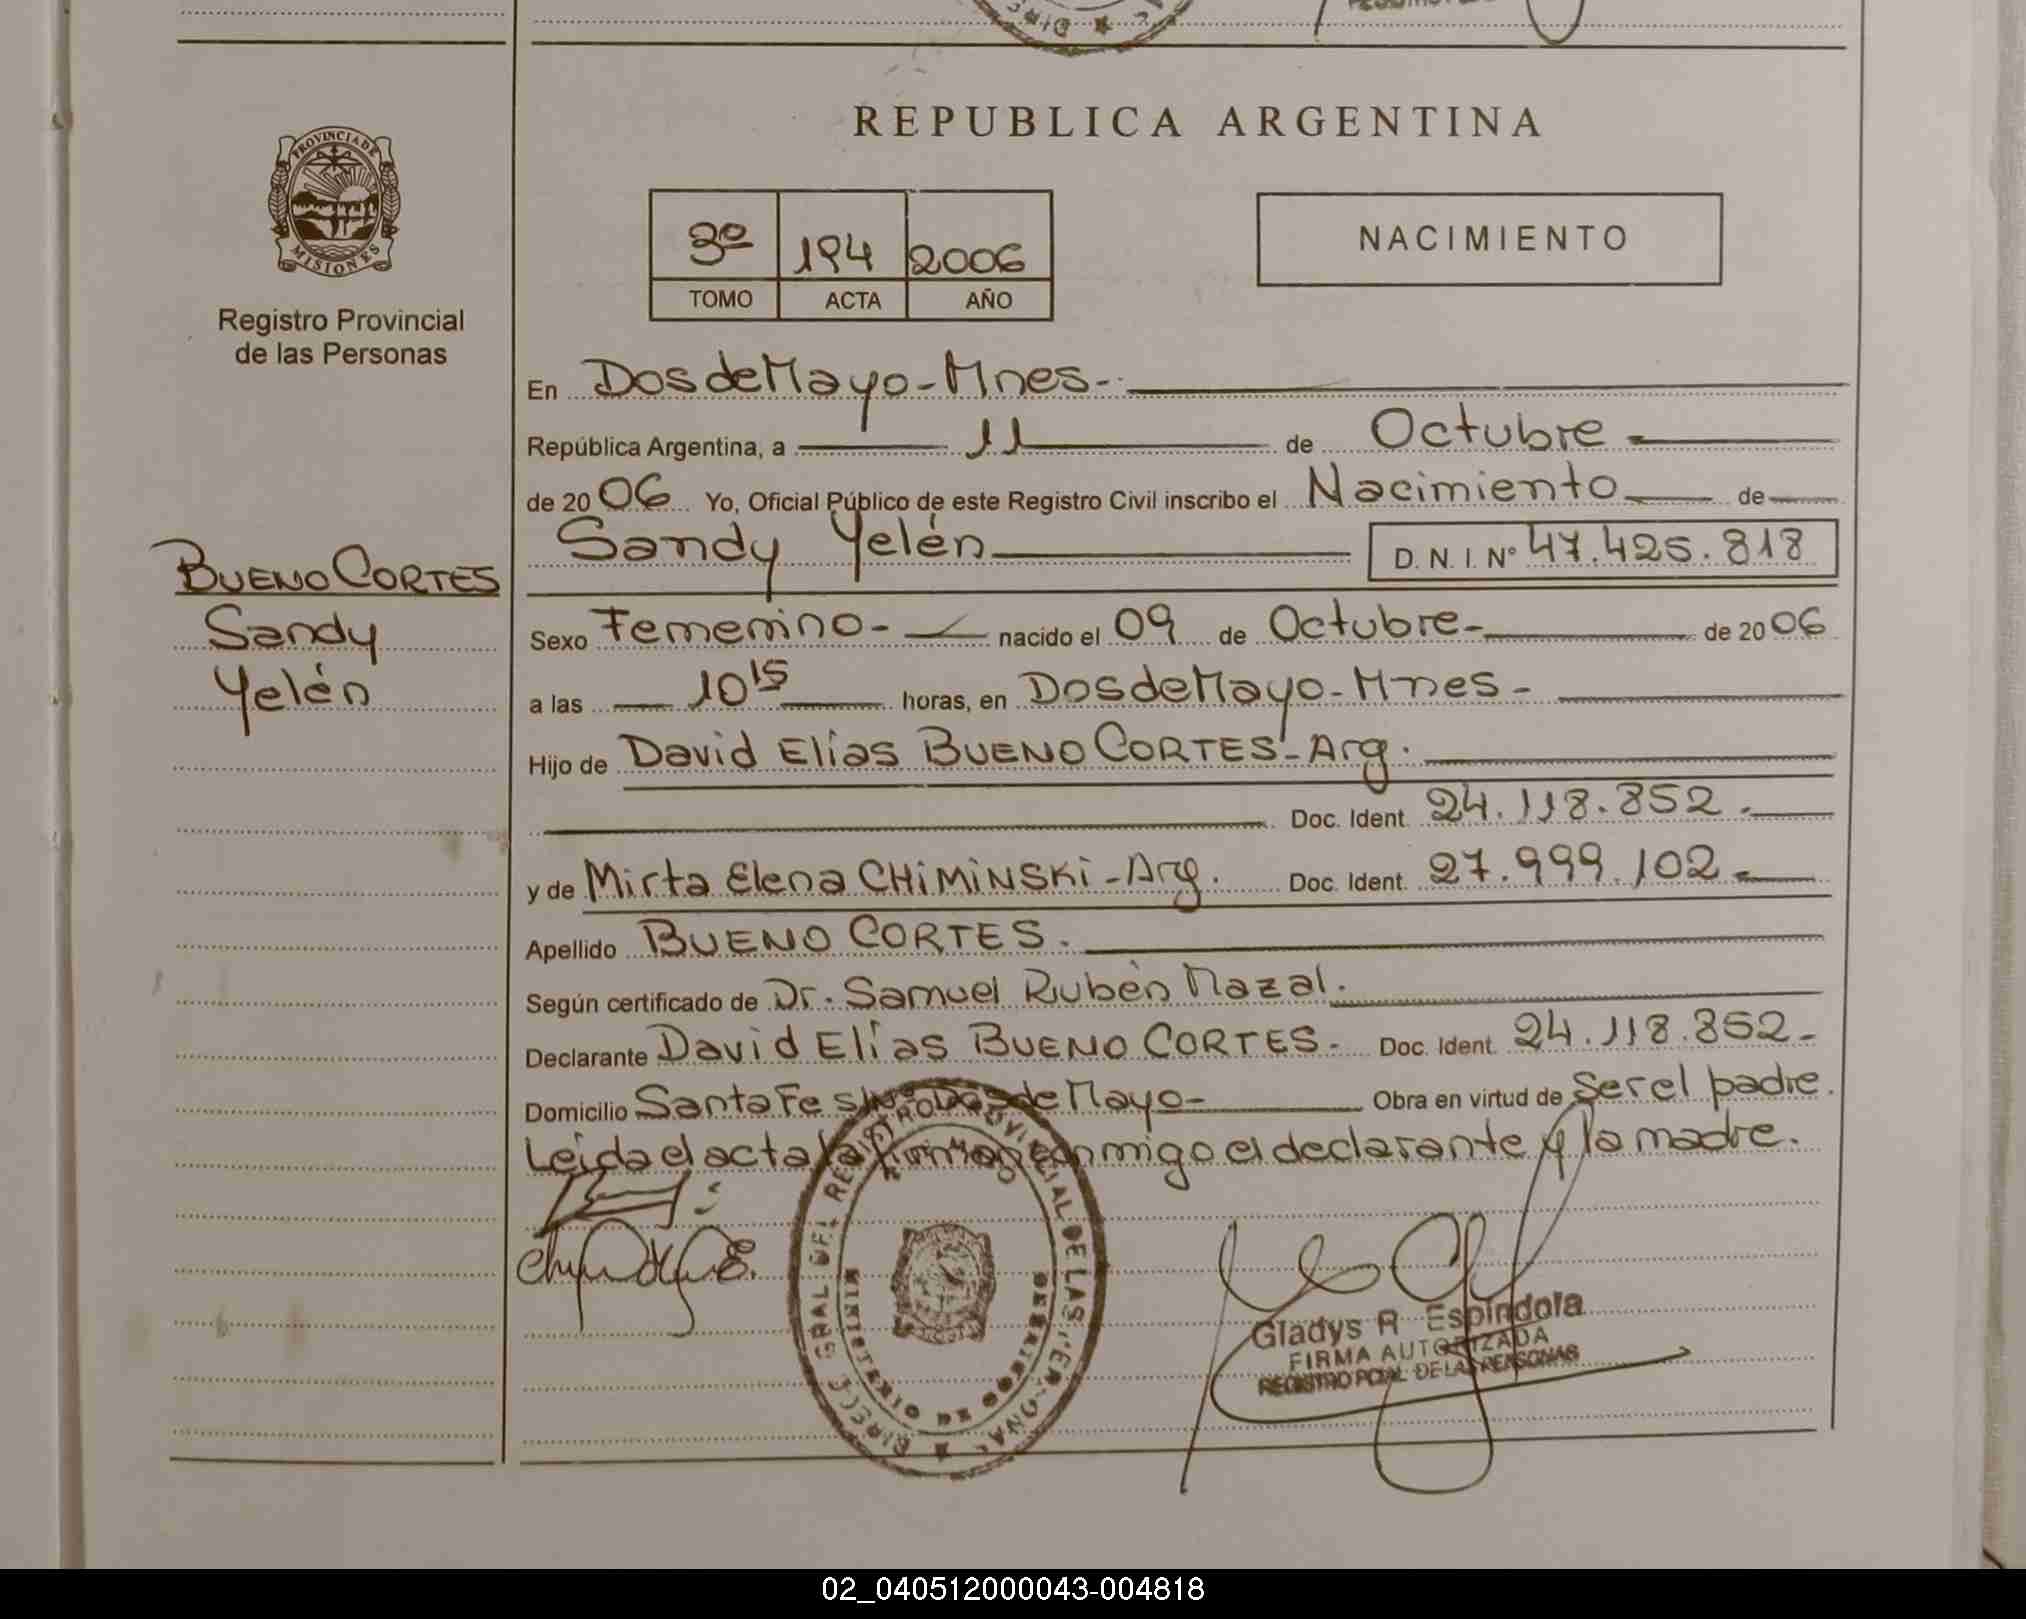 REPUBLICA ARGENTINA
PROVINCIA DE
MISIONES
Registro Provincial
de las Personas
3º 194 2006
TOMO ACTA AÑO
NACIMIENTO
En Dos de Mayo - Mnes -
República Argentina, a 11 de Octubre
de 2006 Yo, Oficial Público de este Registro Civil inscribo el Nacimiento de
Sandy Yelén D. N. I. Nº 47.425.818
BUENO CORTES
Sandy
Yelén
Sexo Femenino - nacido el 09 de Octubre - de 2006
a las 10 15 horas, en Dos de Mayo - Mnes -
Hijo de David Elías BUENO CORTES - Arg.
Doc. Ident. 24.118.852.
y de Mirta Elena CHIMINSKI - Arg. Doc. Ident. 27.999.102
Apellido BUENO CORTES.
Según certificado de Dr. Samuel Rubén Nazal.
Declarante David Elías BUENO CORTES - Doc. Ident. 24.118.852 -
Domicilio Santa Fe s/nº Dos de Mayo - Obra en virtud de ser el padre.
Leída el acta la firman conmigo el declarante y la madre.
Gladys R Espindola
FIRMA AUTORIZADA
REGISTRO PCIAL DE LAS PERSONAS
02_040512000043-004818